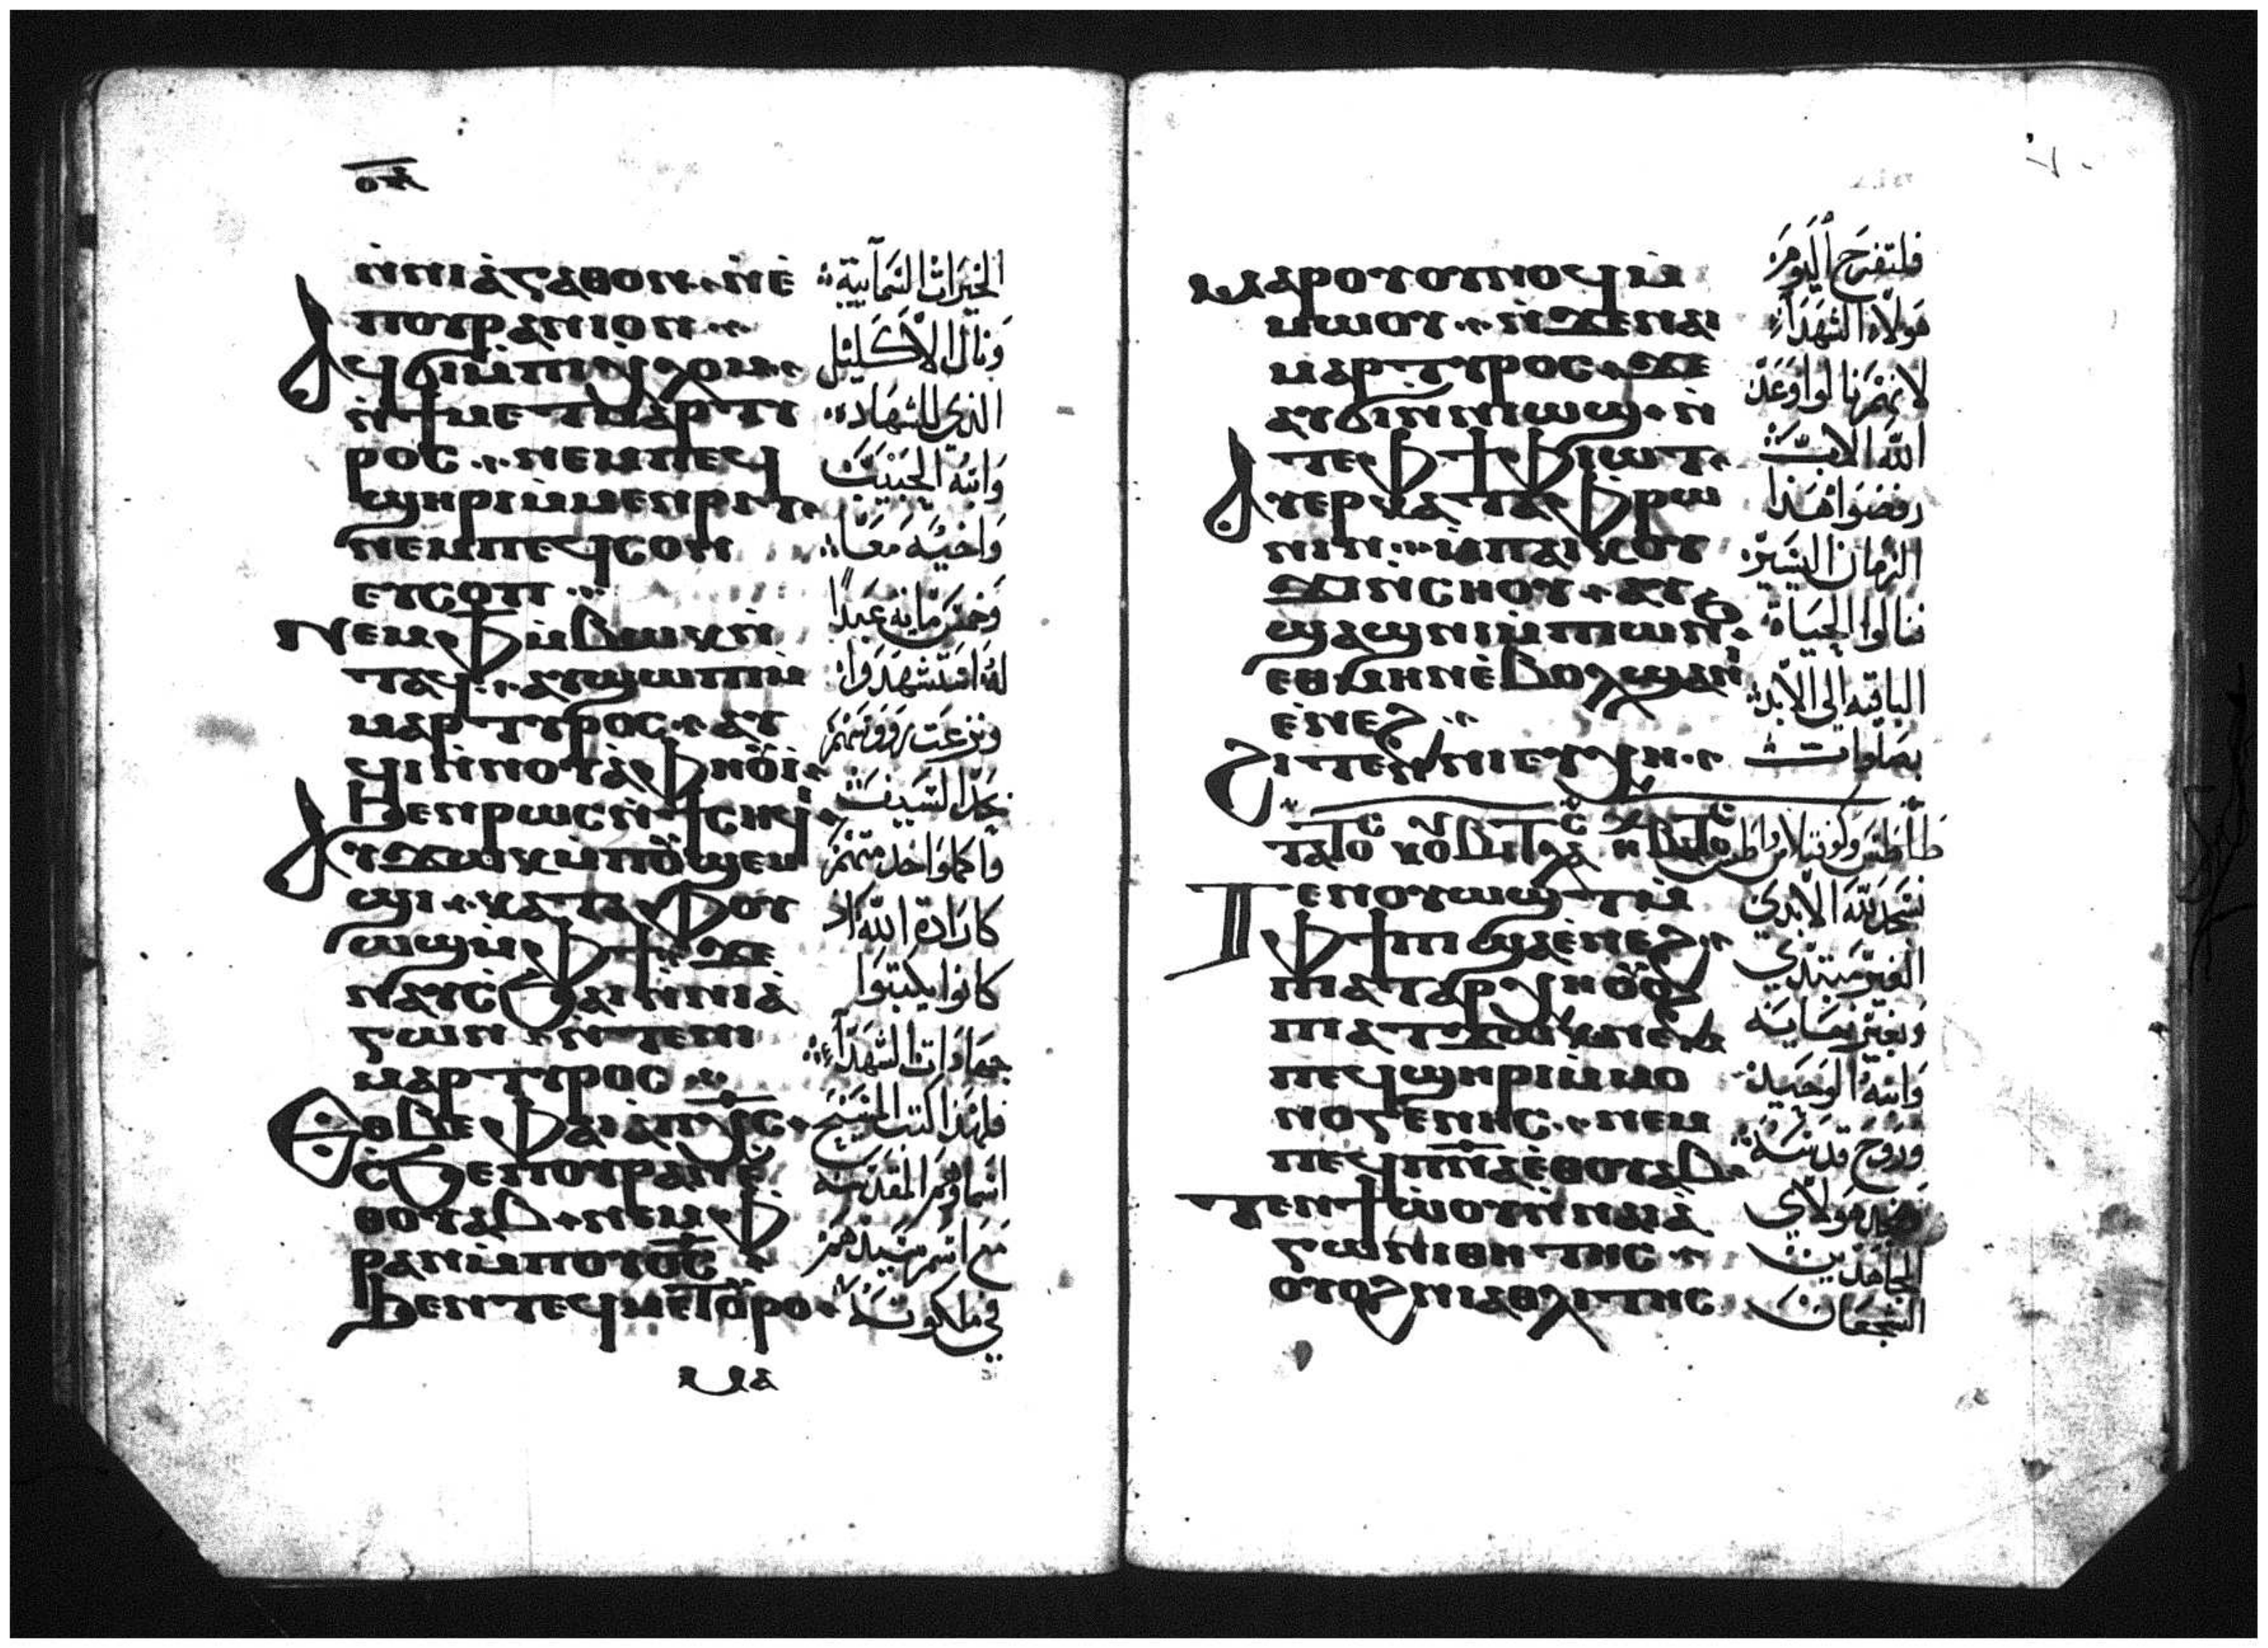 ⲟ̅ⲁ̅
ⲛ̀ⲛⲓⲁ̀ⲅⲁⲑⲟⲛ · ⲛ̀ⲉ̀
ⲡⲟⲩⲣⲁⲛⲓⲟⲛ
ⲁϥϭⲓⲙ̀ⲡⲓⲭ̀ⲗⲟⲙ
ⲛ̀ϯⲙⲉⲧⲙⲁⲣⲧⲓ
ⲣⲟⲥ · ⲛⲉⲙⲡⲉϥ
ϣⲏⲣⲓⲙ̀ⲙⲉⲛⲣⲓⲧ
ⲛⲉⲙⲡⲉϥⲥⲟⲛ
ⲉⲩⲥⲟⲡ
Ⲛⲉⲙ ⲫ ⲙ̀ⲃⲱⲕⲛ̀
ⲧⲁϥ · ⲁⲩϣⲱⲡⲓⲙ̀
ⲙⲁⲣⲧⲩⲣⲟⲥ · ⲁⲩ
ϥⲓⲛ̀ⲛⲟⲩⲁ̀ⲫⲏⲟⲩⲓ̀
ϧⲉⲛⲣⲱⲥⲛ̀ϯⲥⲏϥⲓ
ⲁⲩϫⲱⲕⲙ̀ⲡⲟⲩϣⲉⲙ
ϣⲓ · ⲕⲁⲧⲁ ⲫⲟⲩ
ⲱϣⲙ̀ⲫϯ · ϫⲉ
ⲛⲁⲩⲥϧⲁⲓⲛ̀ⲛⲓⲁ̀
ⲅⲱⲛ ⲛ̀ⲧⲉⲛⲓ
ⲙⲁⲣⲧⲩⲣⲟⲥ
Ⲉⲑⲃⲉ ⲫⲁⲓ ⲁⲡⲭ̅ⲥ̅
ⲥ̀ϧⲉⲛⲟⲩⲣⲁⲛⲉ̀
ⲑⲟⲩⲁⲃ · ⲛⲉⲙ ⲫ
ⲣⲁⲛⲙ̀ⲡⲟⲩⲟ̅ⲥ̅
ϧⲉⲛⲧⲉϥⲙⲉⲧⲟⲩⲣⲟ
ⲙⲁ
الخيرات السمآيية
ونال الاكليل
الذي للشهاده
وابنه الحبيب
واخيه معا
له استشهدوا
ونزعت رووسهم
بحد السيف
واكملوا خدمتهم
كارادة الله اذ
كانوا يكتبوا
جهادات الشهدآء
فلهذا كتب المسيح
اسماوهم المقدسه
مع اسم سيدهم
في ملكوته
Ⲙⲁⲣⲟⲩⲟⲩⲛⲟϥⲙ̀
ⲙⲱⲟⲩ · ⲛ̀ϫⲉⲛⲁⲓ
ⲙⲁⲣⲧⲩⲣⲟⲥ · ϫⲉ
ⲁⲩϭⲓⲛ̀ⲛⲓⲱϣ · ⲛ̀
ⲧⲉ ⲫϯ ⲫⲓⲱⲧ
ⲁⲩⲉⲣⲕⲁⲧⲁ ⲫⲣⲱ
ⲛⲓⲛ · ⲙ̀ⲡⲁⲓⲕⲟⲩ
ϫⲓⲛ̀ⲥⲏⲟⲩ · ⲁⲩ
ϣⲁϣⲛⲓⲙ̀ⲡⲱⲛϧ
ⲉⲑⲙⲏⲛⲉ̀ⲃⲟⲗϣⲁⲛⲓ
ⲉ̀ⲛⲉϩ
Ϩⲓⲧⲉⲛⲛⲓⲉⲩⲭⲏ
Ⲧⲉⲛⲟⲩⲱϣⲧⲙ̀
ⲫϯⲡⲓϣⲁⲉ̀ⲛⲉϩ
ⲡⲓⲁⲧⲁⲣⲭⲏⲟⲩⲟϩ
ⲡⲓⲁⲧϫⲱⲕⲉ̀ⲃ
ⲡⲉϥϣⲏⲣⲓⲙ̀ⲙⲟ
ⲛⲟⲅⲉⲛⲏⲥ · ⲛⲉⲙ
ⲡⲉϥⲡ̅ⲛ̅ⲁ̅ⲉ̀ⲑⲟⲩⲁⲃ
Ⲧⲉⲛϯⲱ̀ⲟⲩⲛ̀ⲛⲁⲓⲁ̀
ⲅⲱⲛⲓⲑⲏⲧⲏⲥ
ⲟⲩⲟϩⲛⲓⲁⲑⲗⲓⲧⲏⲥ
فلتفرح اليوم
هولاء الشهدآء
لانهم نالوا وعد
الله الاب
رفضوا هذا
الزمان اليسير
نالوا الحياة
الباقيه الي الابد
بصلوات
نسجد لله الابدي
الغير مبتدي
وبغير نهايه
وابنه الوحيد
وروح قدسه
هولاي
المجاهدين
الشجعان